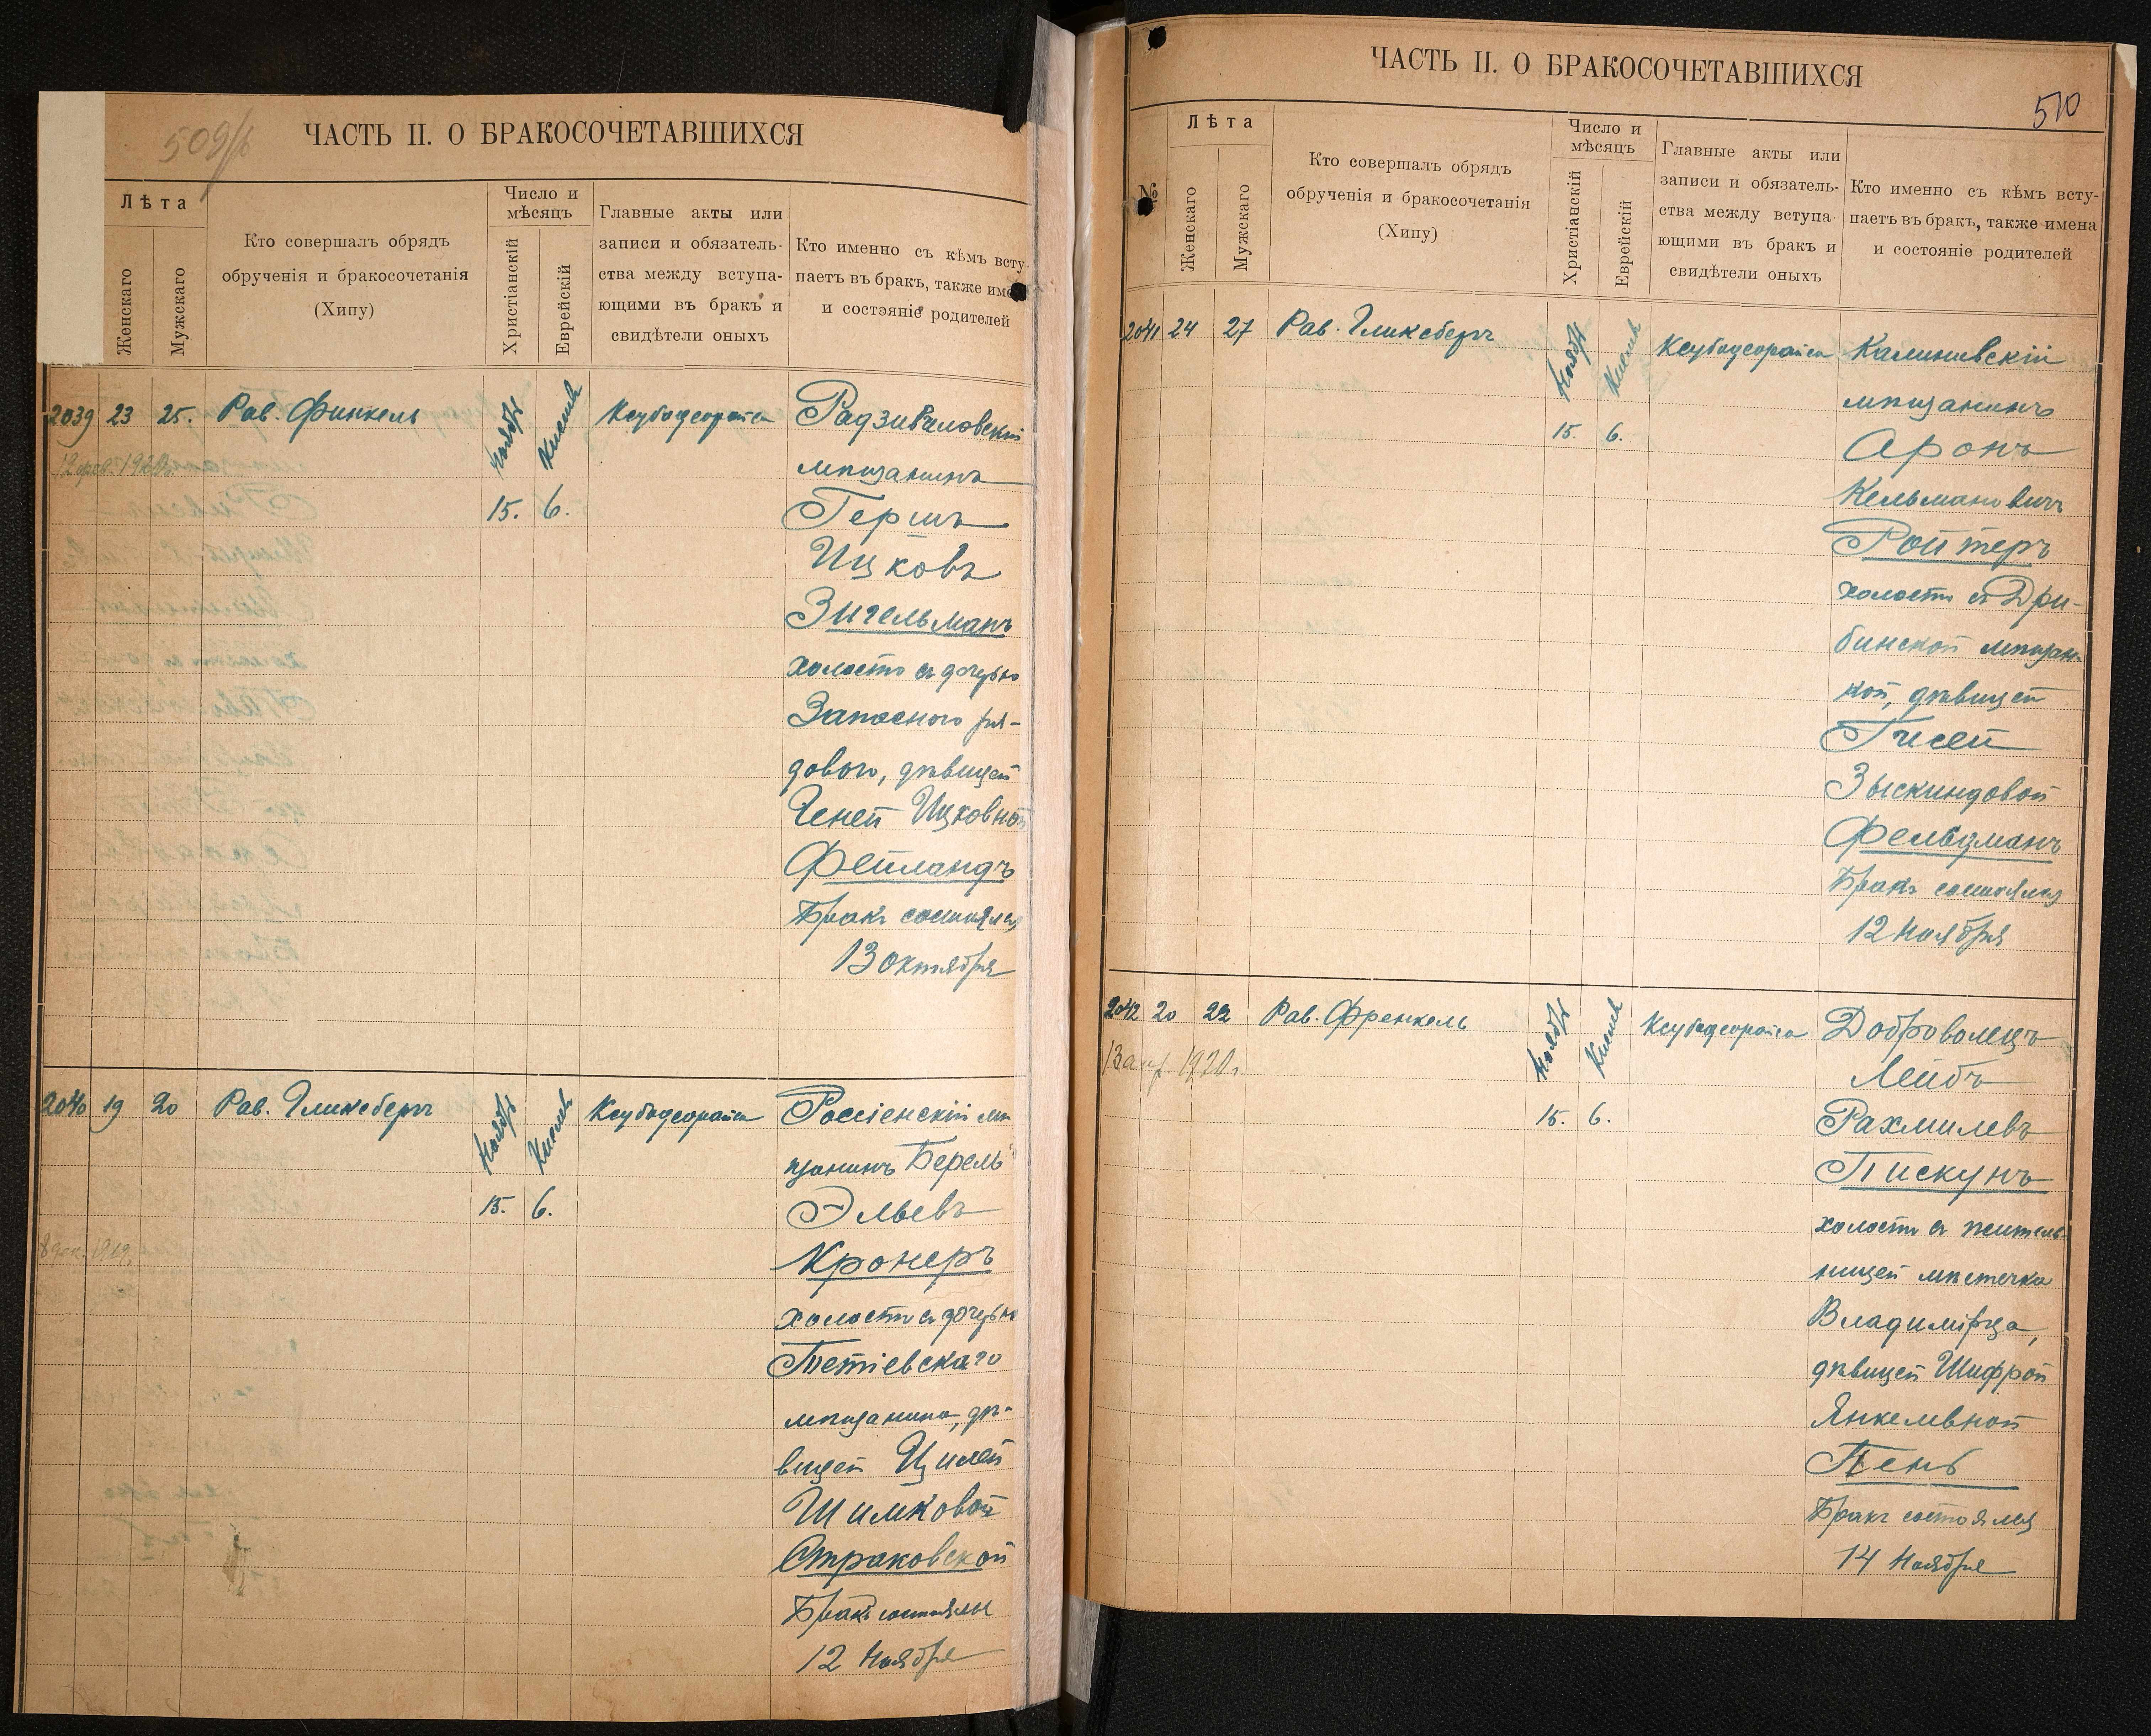 509/б
ЧАСТЬ II. О БРАКОСОЧЕТАВШИХСЯ
Лѣта
Женскаго
Мужскаго
Кто совершалъ обрядъ
обрученія и бракосочетанія
(Хипу)
Число и
мѣсяцъ
Христіанскій
Еврейскій
Главные акты или
записи и обязатель-
ства между вступа-
ющими въ бракъ и
свидѣтели оныхъ
Кто именно съ кѣмъ всту-
паетъ въ бракъ, также име
и состояніе родителей
2039 23 25. Рав. Финкель Ноябрь Кислев Ксубодеорайса Радзивиловскій
мѣщанинъ
Гершъ
15. 6.
Ицковъ
Зигельманъ
холостъ съ дочерью
Запасного ря-
дового, дѣвицей
Геней Ицковной
Фейландъ
Бракъ состоялся
13 октября
2040 19 20 Рав. Гликсбергъ Ноябрь Кислев Ксубодеорайса Россіенскій мѣ
щанинъ Берель
15. 6. Эльевъ
8 дек. 1919.
Кронеръ
холостъ съ дочерью
Тетіевскаго
мѣщанина, дѣ-
вицей Цилей
Шимковой
Страковской
Бракъ состоялся
12 Ноября
ЧАСТЬ II. О БРАКОСОЧЕТАВШИХСЯ
510
№
Лѣта
Женскаго
Мужскаго
Кто совершалъ обрядъ
обрученія и бракосочетанія
(Хипу)
Число и
мѣсяцъ
Христіанскій
Еврейскій
Главные акты или
записи и обязатель-
ства между вступа-
ющими въ бракъ и
свидѣтели оныхъ
Кто именно съ кѣмъ всту-
паетъ въ бракъ, также имена
и состояніе родителей
2041 24 27 Рав. Гликсбергъ Ноябрь Кислев Ксубодеорайса Калинивскій
мѣщанинъ
15. 6. Аронъ
Кельмановичъ
Ройтеръ
холостъ съ Дри-
бинской мѣщан-
кой, дѣвицей
Гисей
Зыскиндовой
Фельцманъ
Бракъ состоялся
12 Ноября
2042 20 22 Рав. Френкель Ноябрь Кислев Ксубодеорайса Доброволецъ
13 апр. 1920 г.
Лейбъ
15. 6. Рахмилевъ
Пискунъ
холостъ съ житель-
ницей мѣстечка
Владимірца,
дѣвицей Шифрой
Янкелевной
Пень
Бракъ состоялся
14 Ноября